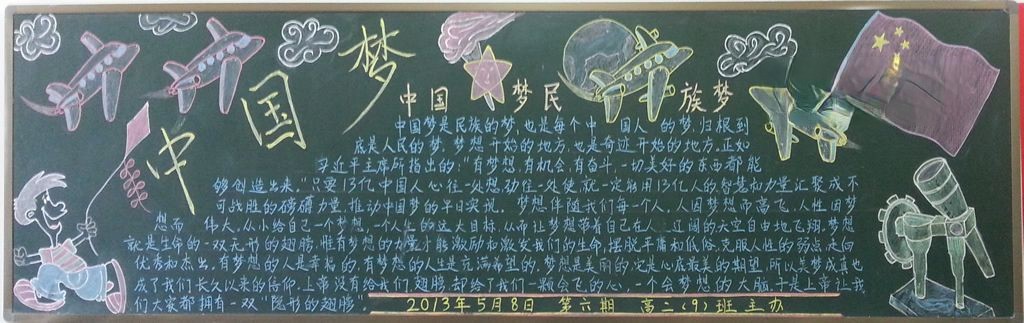 中国梦
中国梦民族梦
中国梦是民族的梦,也是每个中国人的梦.归根到
底是人民的梦.梦想开始的地方.也是奇迹开始的地方.正如
习近平主席所指出的:"有梦想,有机会,有奋斗,一切美好的东西都能
够创造出来."只要13亿中国人心往一处想劲往一处使,就一定能够用13亿人的智慧和力量汇聚成不
可战胜的磅礴力量,推动中国梦的早日实现.梦想伴随我们每一个人,人因梦想而高飞,人性因梦
想而伟大.从小给自己一个梦想,一个人生的远大目标,从而让梦想带着自己在人生辽阔的天空自由地飞翔.梦想
就是生命的一双无形的翅膀,惟有梦想的力量才能激励和激发我们的生命,摆脱平庸和低俗,克服人性的弱点,走向
优秀和杰出.有梦想的人是幸福的,有梦想的人生是充满希望的,梦想是美丽的,它是心底最美的期望,所以美梦成真也
成了我们长久以来的信仰.上帝没有给我们翅膀,却给了我们一颗会飞的心,一个会梦想的大脑.于是上帝让我
们大家都拥有一双"隐形的翅膀"
2013年5月8日 第六期 高二(9)班主办